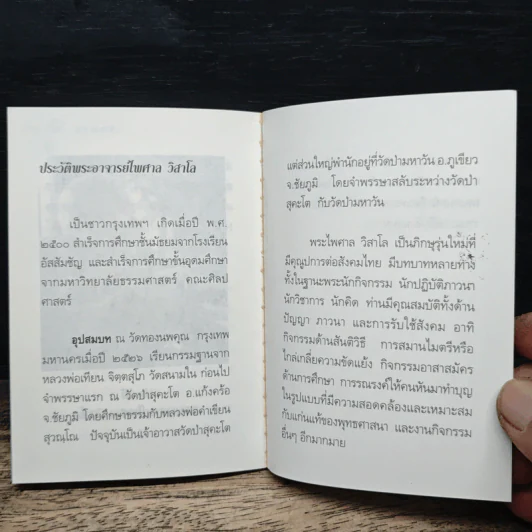 ประวัติพระอาจารย์ไพศาล วิสาโล
เป็นชาวกรุงเทพฯ เกิดเมื่อปี พ.ศ.
๒๕๐๐ สำเร็จการศึกษาชั้นมัธยมจากโรงเรียน
อัสสัมชัญ และสำเร็จการศึกษาชั้นอุดมศึกษา
จากมหาวิทยาลัยธรรมศาสตร์ คณะศิลป
ศาสตร์
อุปสมบท ณ วัดทองนพคุณ กรุงเทพ
มหานครเมื่อปี ๒๕๒๖ เรียนกรรมฐานจาก
หลวงพ่อเทียน จิตฺตสุโภ วัดสนามใน ก่อนไป
จำพรรษาแรก ณ วัดป่าสุคะโต อ.แก้งคร้อ
จ.ชัยภูมิ โดยศึกษาธรรมกับหลวงพ่อคำเขียน
สุวณฺโณ ปัจจุบันเป็นเจ้าอาวาสวัดป่าสุคะโต
แต่ส่วนใหญ่พำนักอยู่ที่วัดป่ามหาวัน อ.ภูเขียว
จ.ชัยภูมิ โดยจำพรรษาสลับระหว่างวัดป่า
สุคะโต กับวัดป่ามหาวัน
พระไพศาล วิสาโล เป็นภิกษุรุ่นใหม่ที่
มีคุณูปการต่อสังคมไทย มีบทบาทหลายทาง
ทั้งในฐานะพระนักกิจกรรม นักปฏิบัติภาวนา
นักวิชาการ นักคิด ท่านมีคุณสมบัติทั้งด้าน
ปัญญา ภาวนา และการรับใช้สังคม อาทิ
กิจกรรมด้านสันติวิธี การสมานไมตรีหรือ
ไกล่เกลี่ยความขัดแย้ง กิจกรรมอาสาสมัคร
ด้านการศึกษา การรณรงค์ให้คนหันมาทำบุญ
ในรูปแบบที่มีความสอดคล้องและเหมาะสม
กับแก่นแท้ของพุทธศาสนา และงานกิจกรรม
อื่นๆ อีกมากมาย